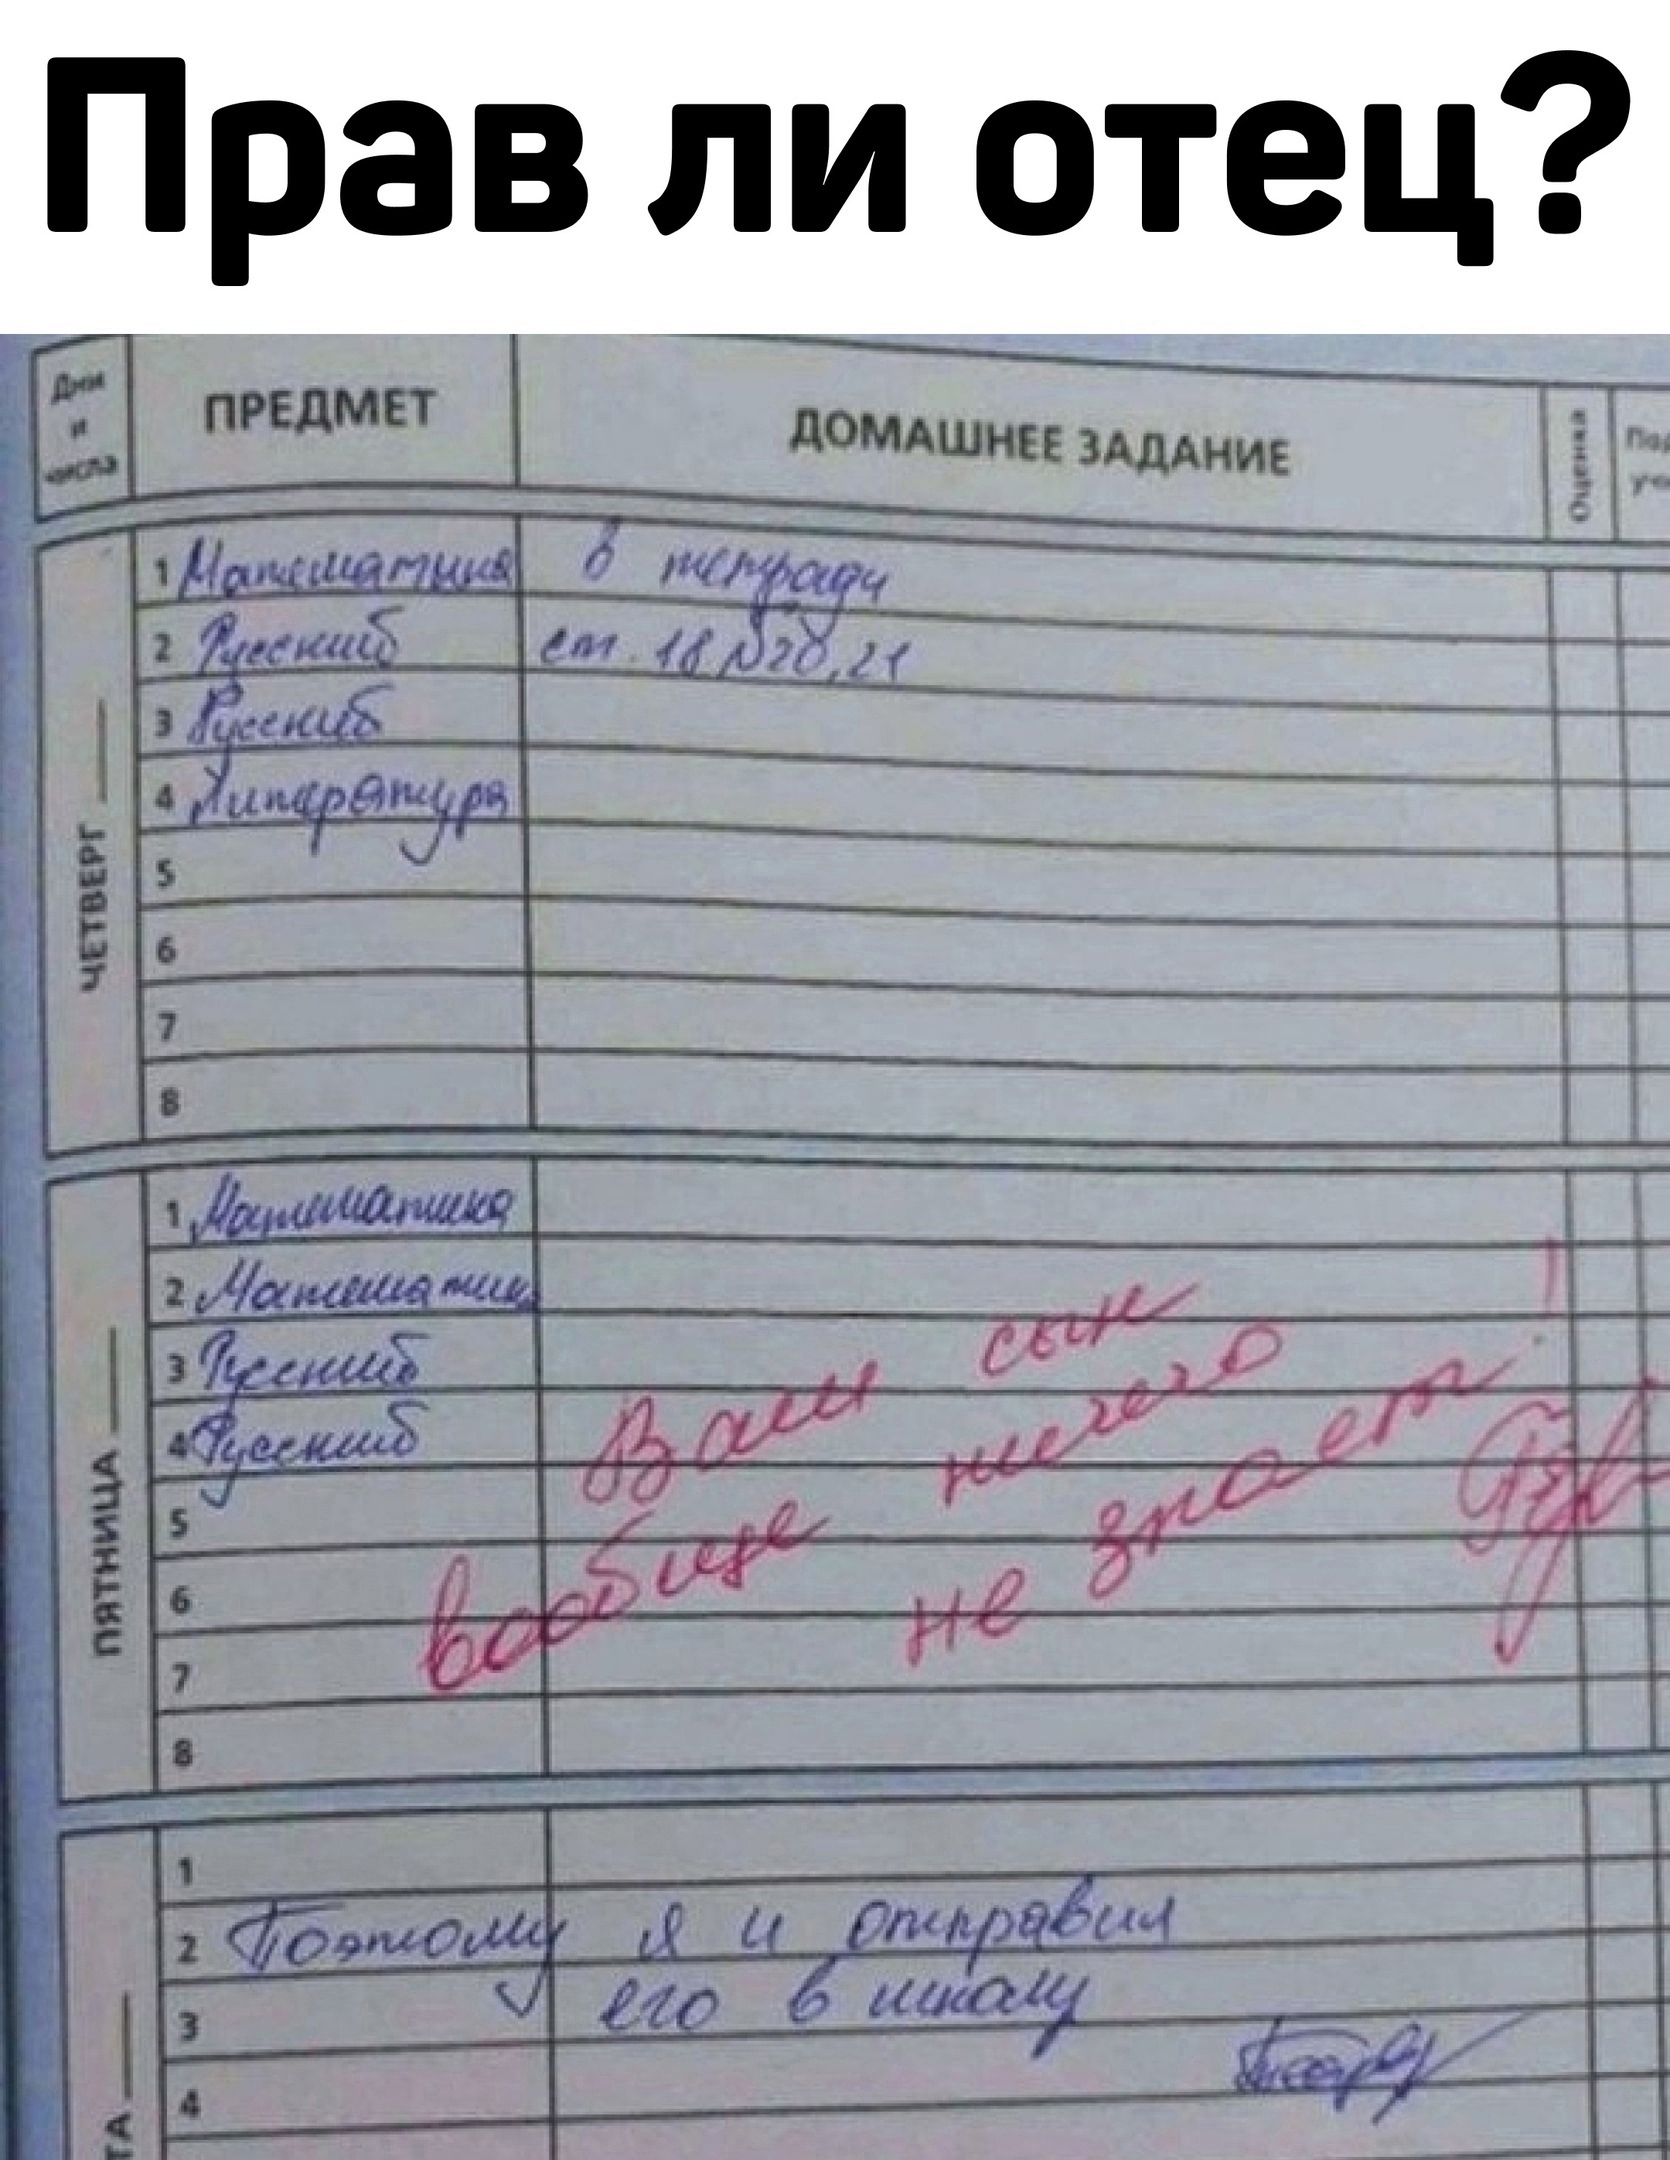 Прав ли отец?
Дни и числа ПРЕДМЕТ ДОМАШНЕЕ ЗАДАНИЕ Оценка
ЧЕТВЕРГ
1 Математика в тетради
2 Русский ст. 18 №20,21
3 Русский
4 Литература
5
6
7
8
ПЯТНИЦА
1 Математика
2 Математик
3 Русский
4 Русский
5
6
7
8
Ваш сын
вообще ничего
не знает!
1
2 Поэтому я и отправил
3 его в школу
4